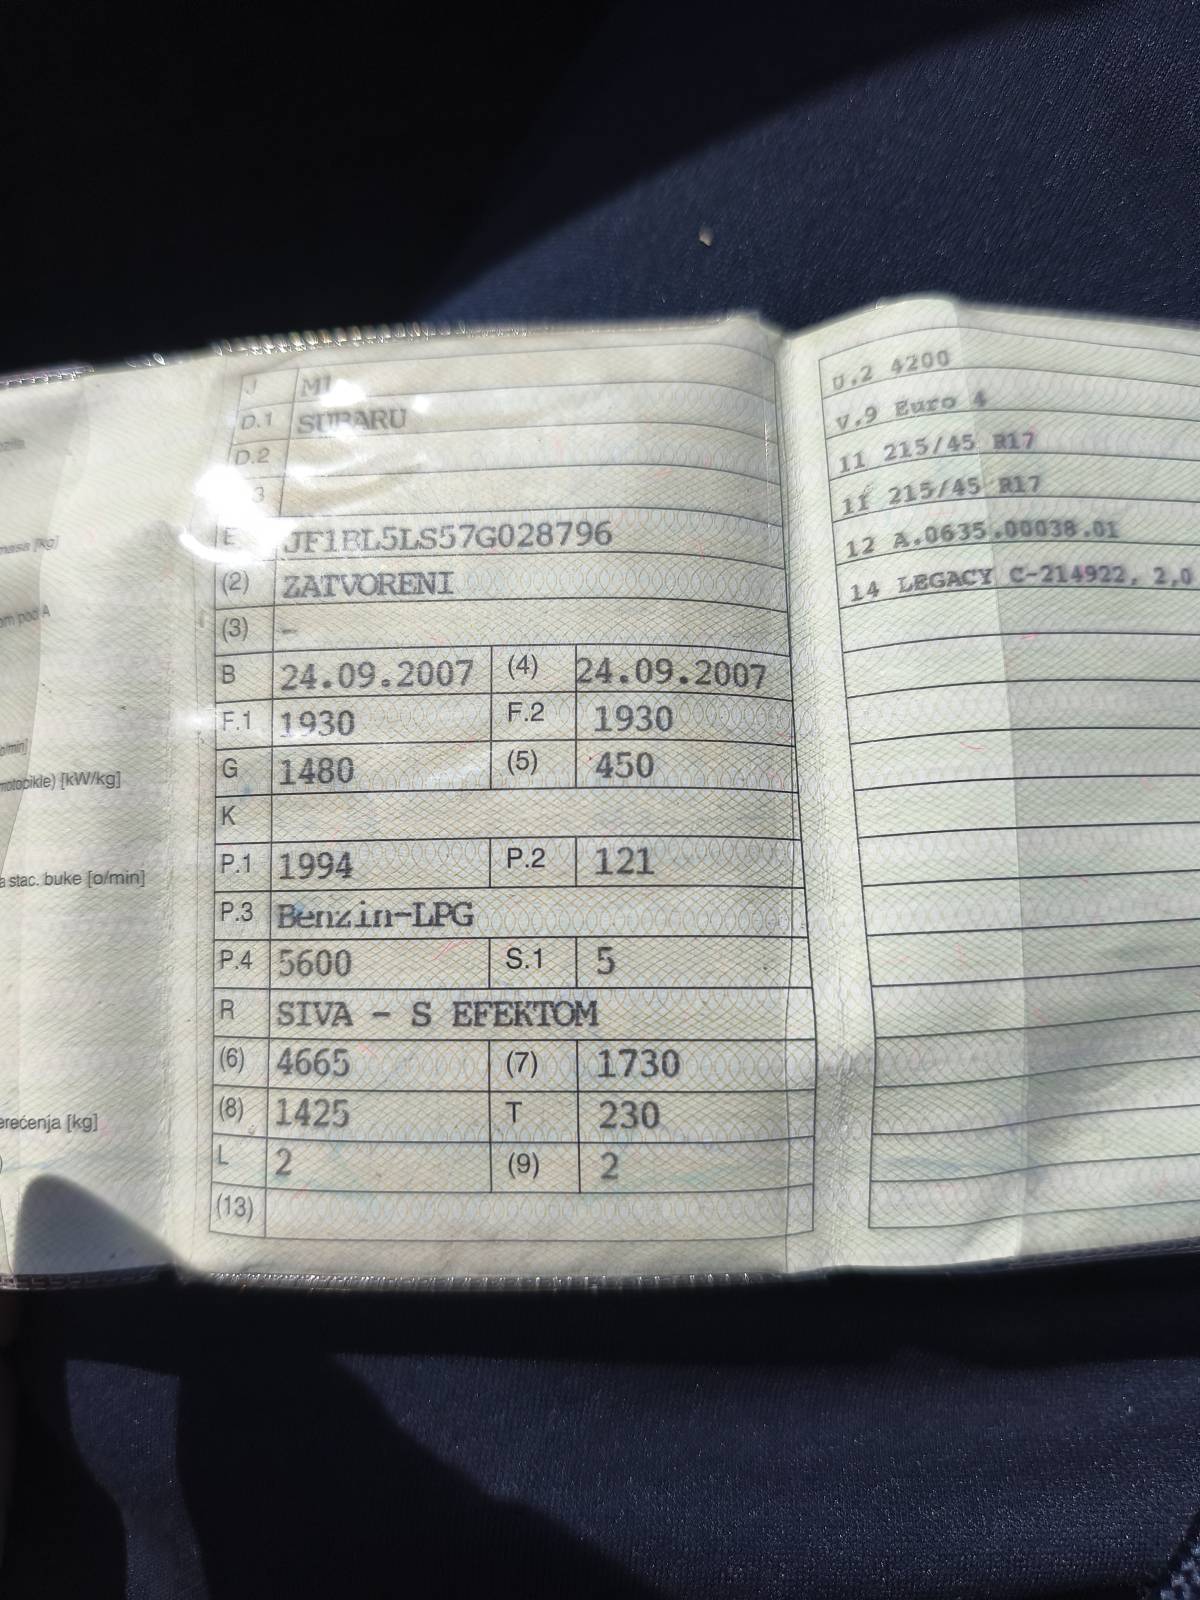 masa [kg]
om pod A
o/min]
motocikle) [kW/kg]
a stac. buke [o/min]
erećenja [kg]
J M1
D.1 SUBARU
D.2
3
E JF1BL5LS57G028796
(2) ZATVORENI
(3) –
B 24.09.2007 (4) 24.09.2007
F.1 1930 F.2 1930
G 1480 (5) 450
K
P.1 1994 P.2 121
P.3 Benzin-LPG
P.4 5600 S.1 5
R SIVA - S EFEKTOM
(6) 4665 (7) 1730
(8) 1425 T 230
L 2 (9) 2
(13)
U.2 4200
V.9 Euro 4
11 215/45 R17
11 215/45 R17
12 A.0635.00038.01
14 LEGACY C-214922, 2,0